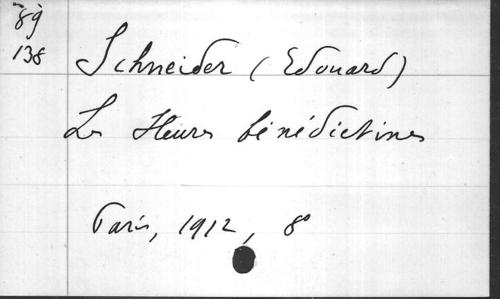 89
138
Schneider (Edouard)
Les Heures bénédictines
Paris, 1912, 8°